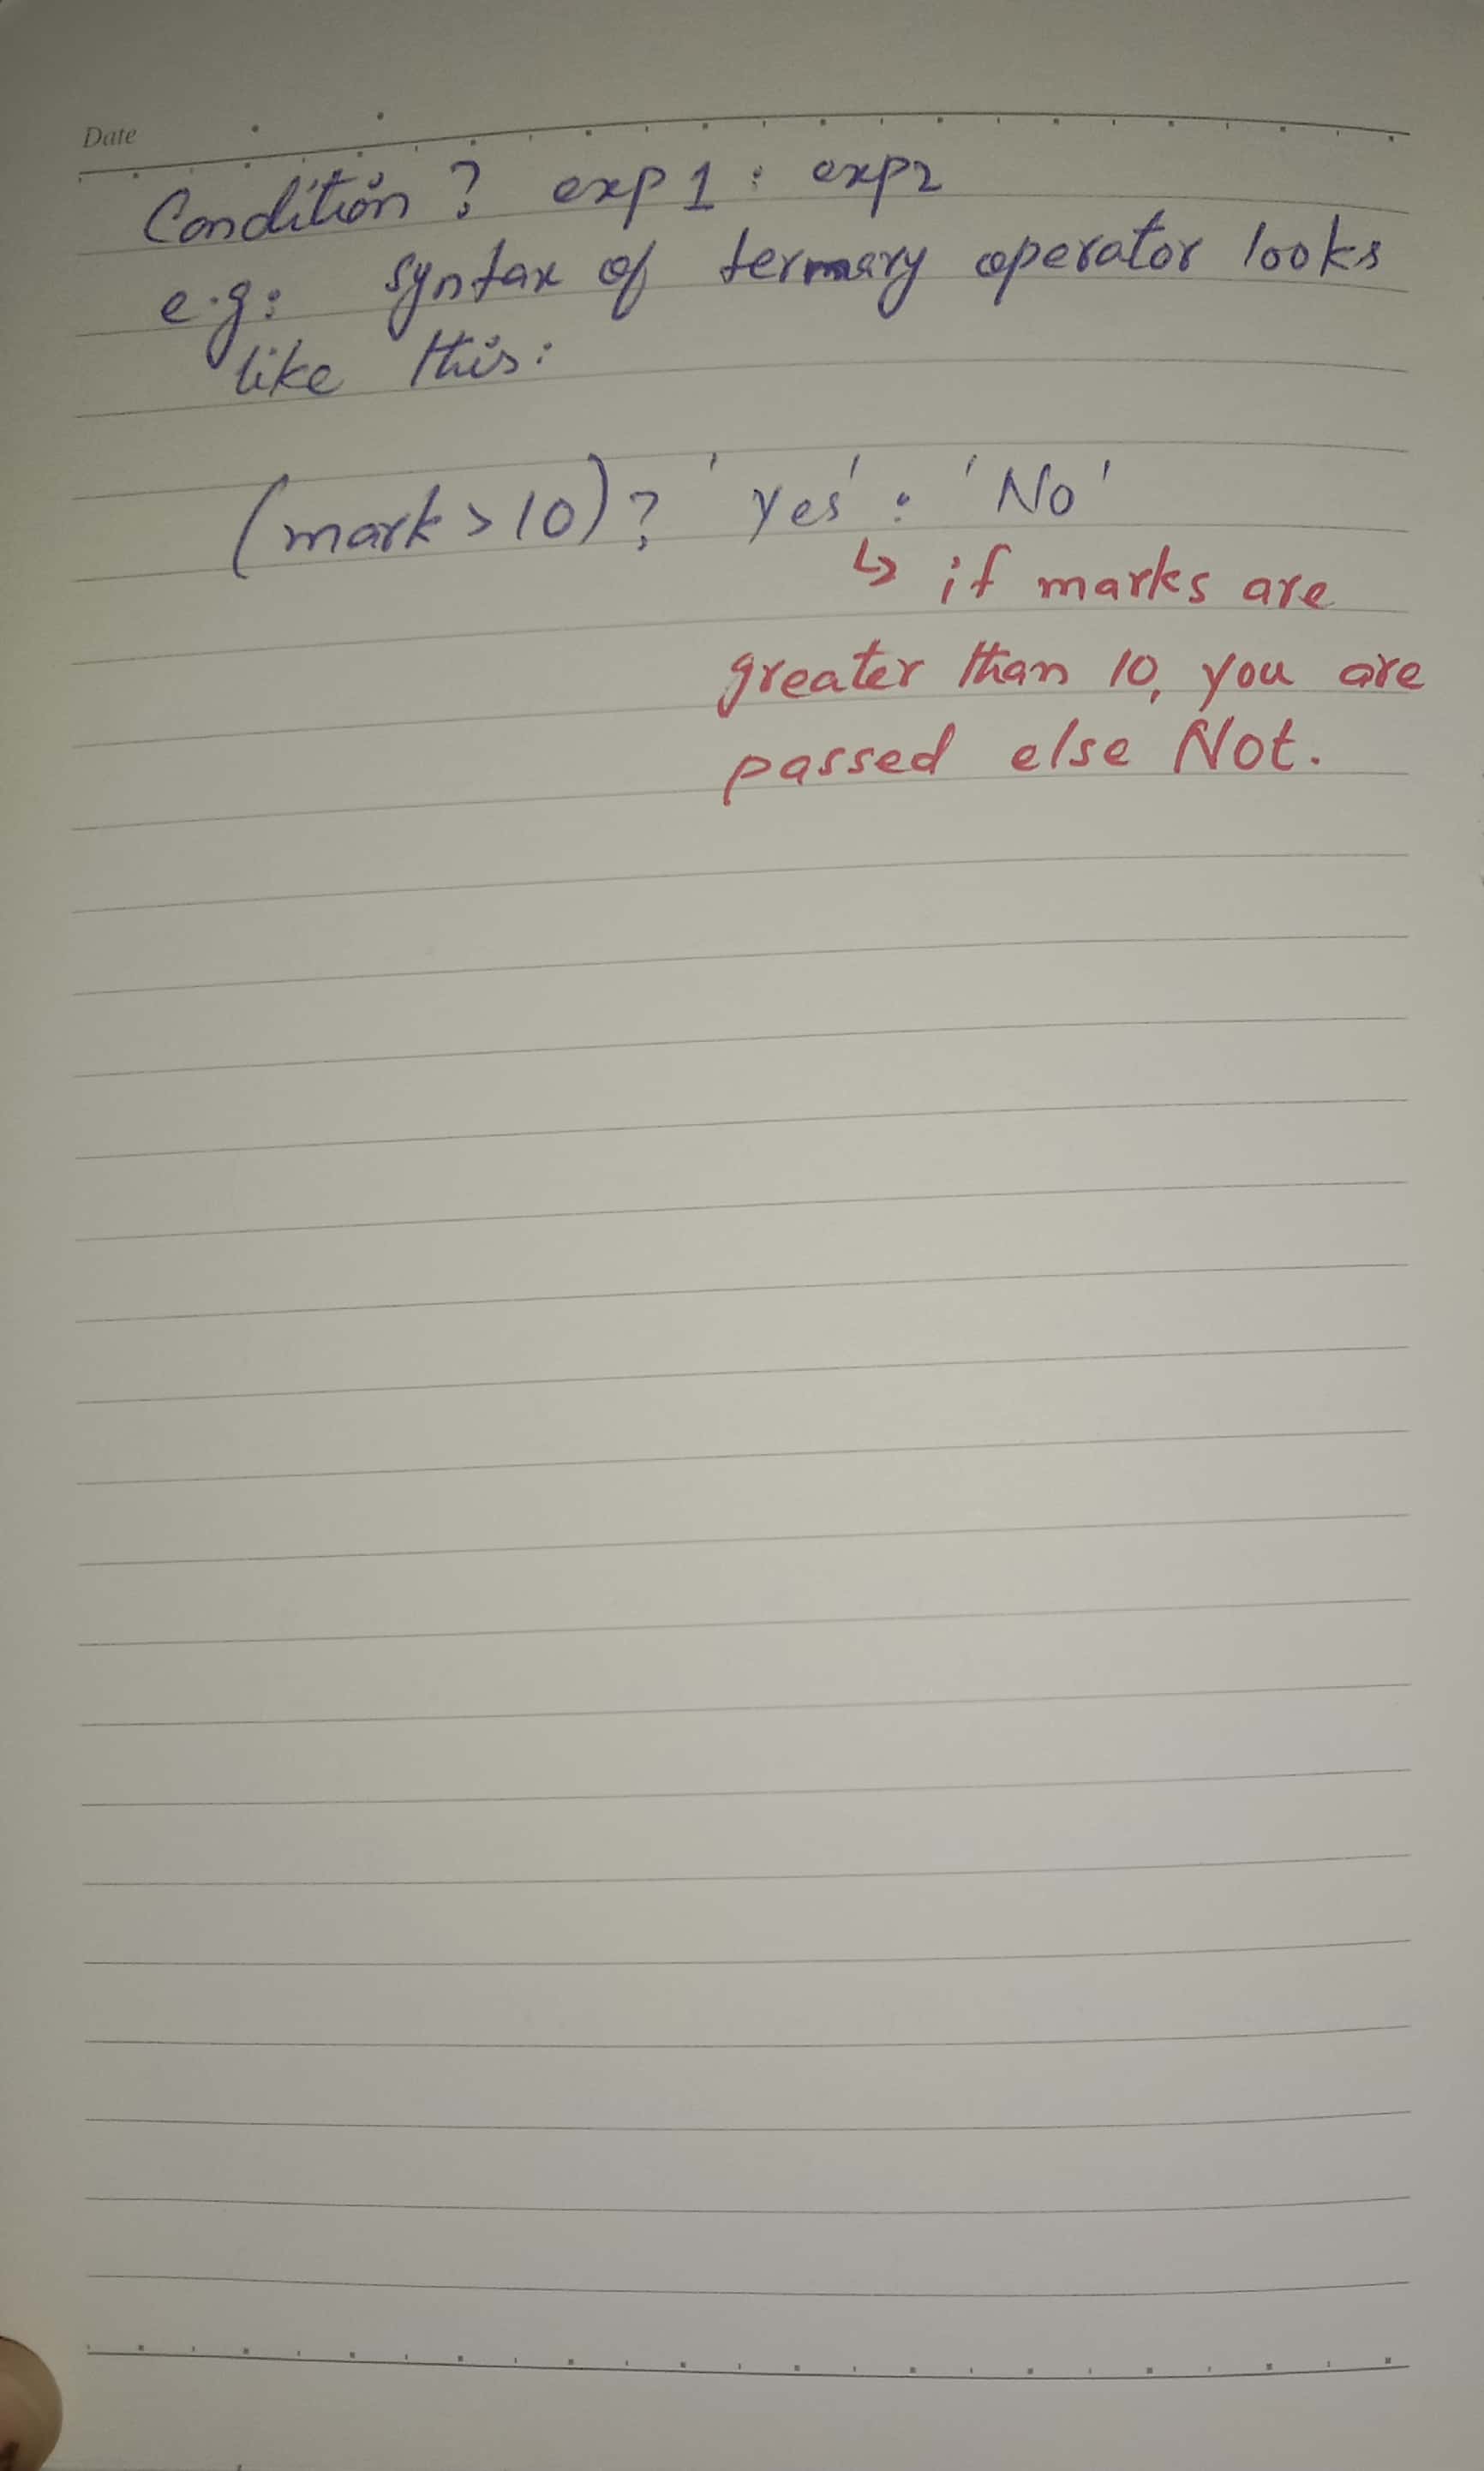 Date
Condition ? exp 1 : exp2
e.g: syntax of ternary operator looks
like this:
(mark > 10) ? 'yes' : 'No'
↳ if marks are
greater than 10, you are
passed else Not.